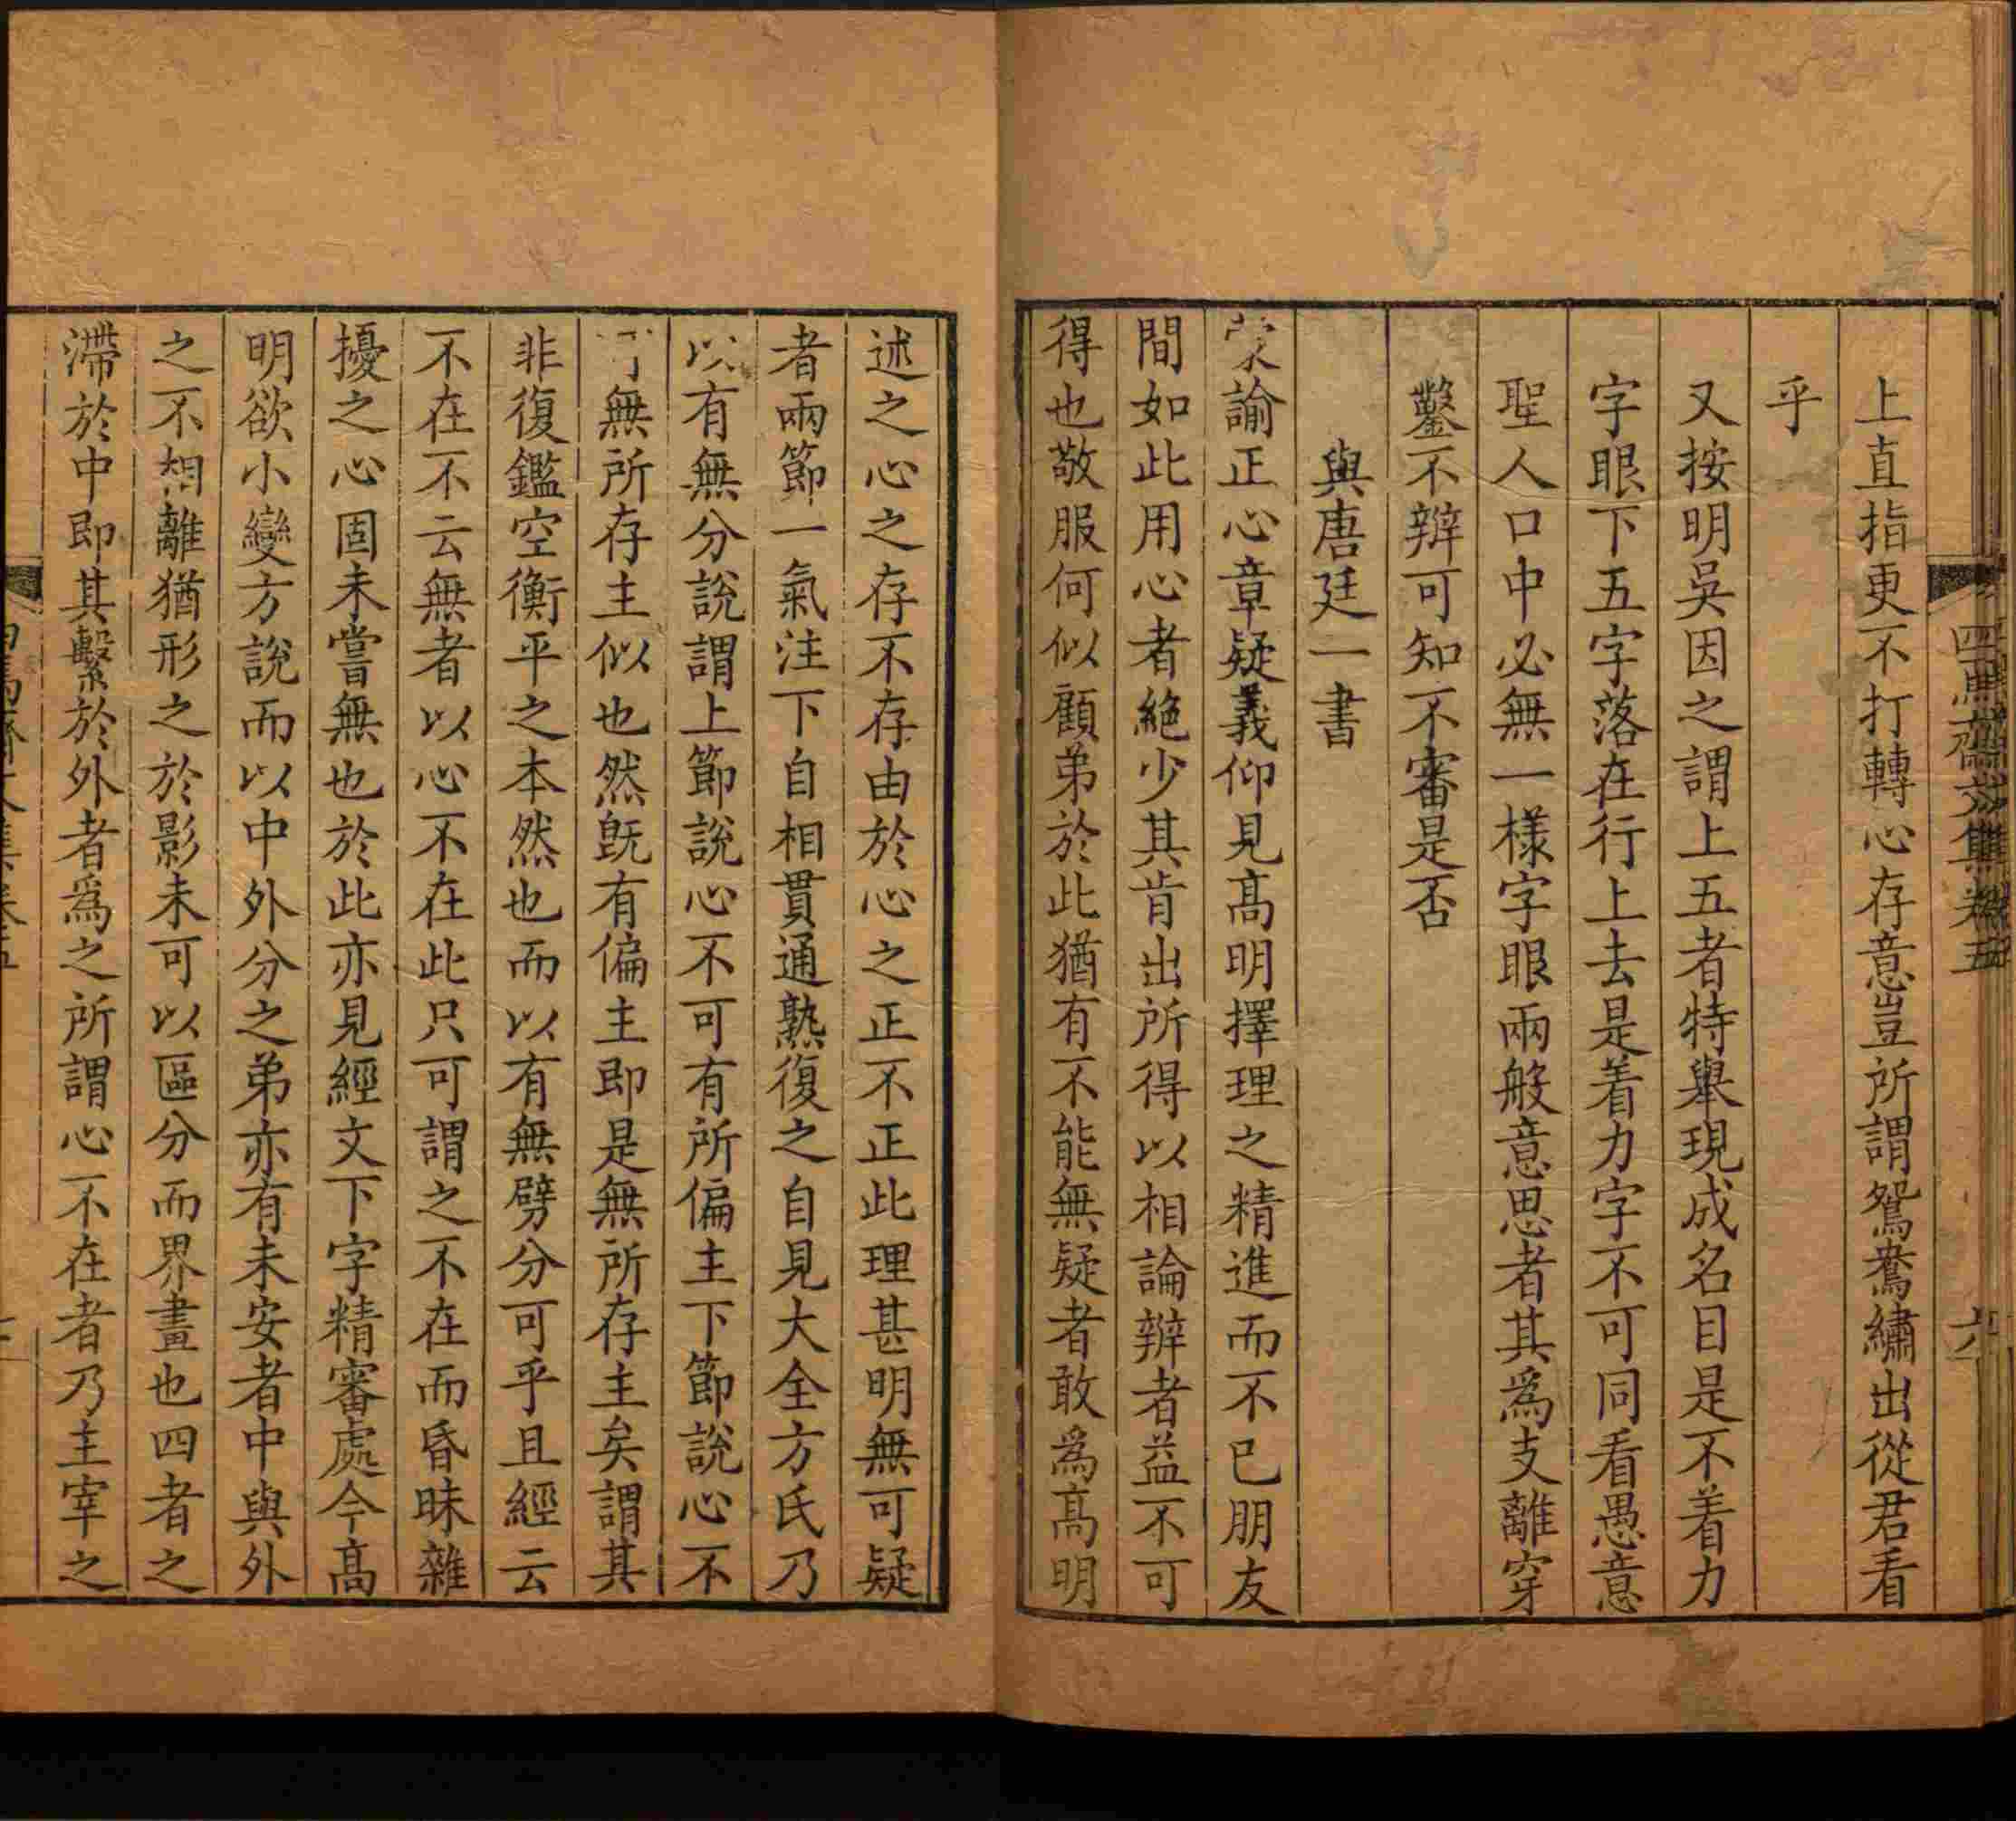 四焉齋文集卷五
六
上直指更不打轉心存意豈所謂鴛鴦繡出從君看
乎
又按明吳因之謂上五者特舉現成名目是不着力
字眼下五字落在行上去是着力字不可同看愚意
聖人口中必無一樣字眼兩般意思者其為支離穿
鑿不辨可知不審是否
與唐廷一書
蒙諭正心章疑義仰見髙明擇理之精進而不已朋友
間如此用心者絶少其肯出所得以相論辨者益不可
得也敬服何似顧弟於此猶有不能無疑者敢為髙明
述之心之存不存由於心之正不正此理甚明無可疑
者兩節一氣注下自相貫通熟復之自見大全方氏乃
以有無分說謂上節說心不可有所偏主下節說心不
可無所存主似也然既有偏主即是無所存主矣謂其
非復鑑空衡平之本然也而以有無劈分可乎且經云
不在不云無者以心不在此只可謂之不在而昏昧雜
擾之心固未嘗無也於此亦見經文下字精審處今髙
明欲小變方說而以中外分之弟亦有未安者中與外
之不相離猶形之於影未可以區分而界畫也四者之
滯於中即其繫於外者為之所謂心不在者乃主宰之